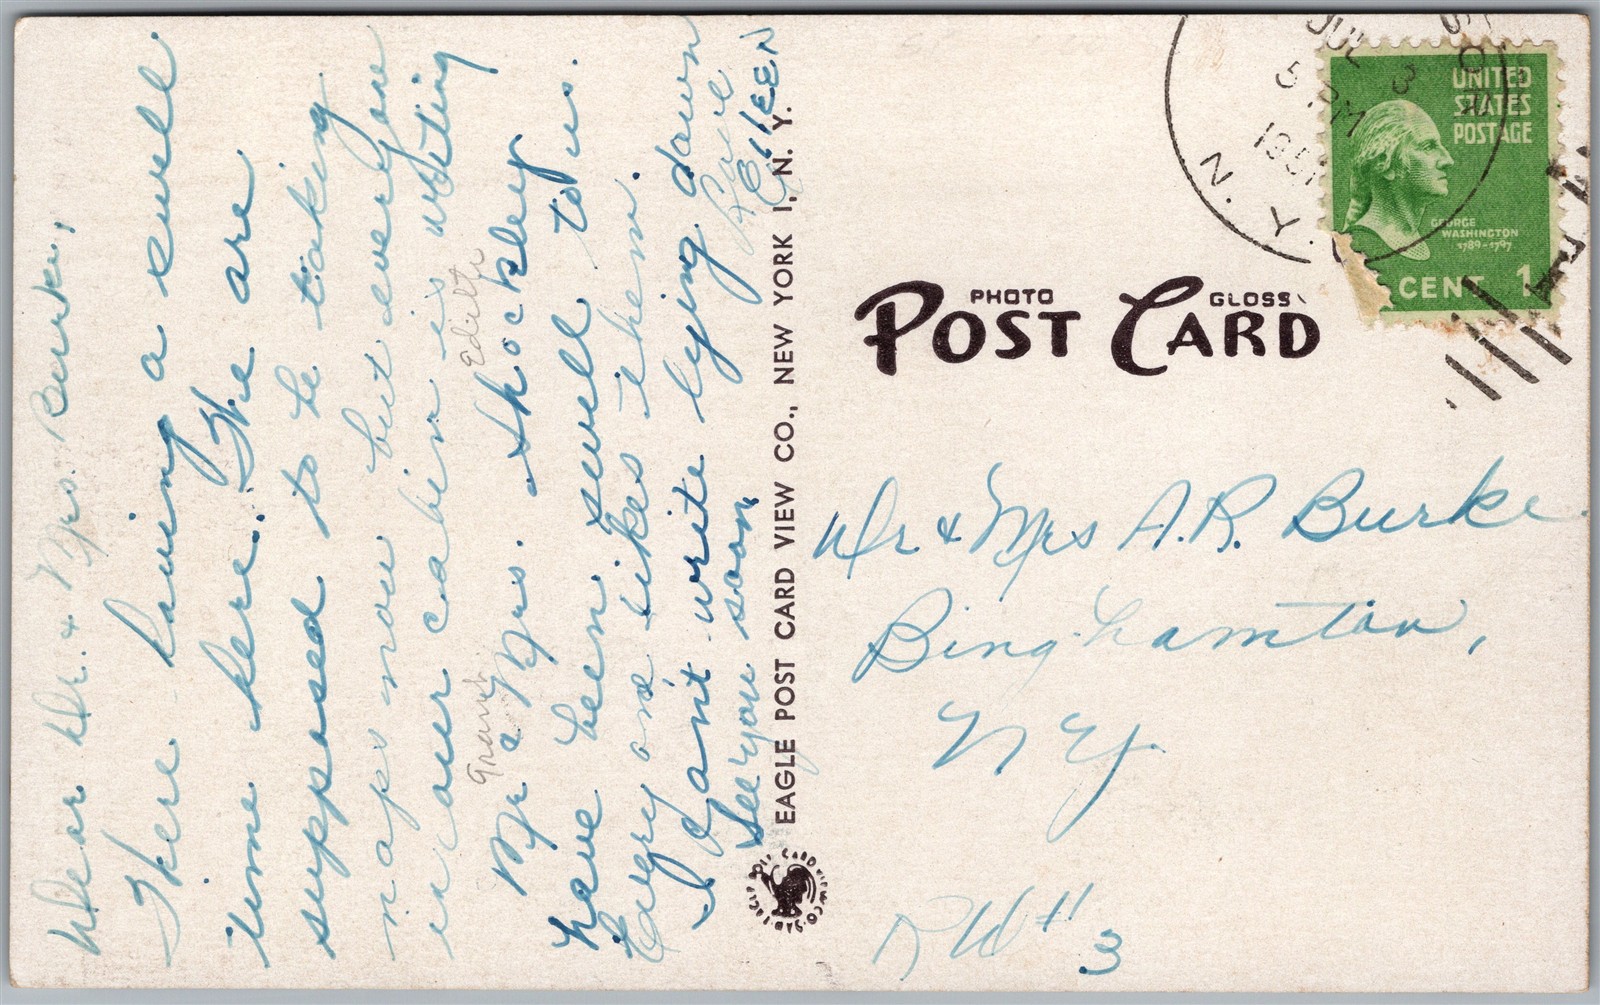 Dear Dr. & Mrs. Burke,
There having a swell
time here. We are
supposed to be taking
naps now but everyone
in our cabin is writing
Grant Edith
Mr & Mrs. Shockley
have been swell to us.
Every one likes them.
I can't write lying down
See you soon,
Love
EILEEN
EAGLE POST CARD VIEW CO., NEW YORK 1, N. Y.
JUL 3
5 PM
1951
N. Y.
UNITED
STATES
POSTAGE
GEORGE
WASHINGTON
1789-1797
CENT 1
PHOTO GLOSS
POST CARD
Dr. & Mrs A. R. Burke
Binghamton,
N Y.
#3